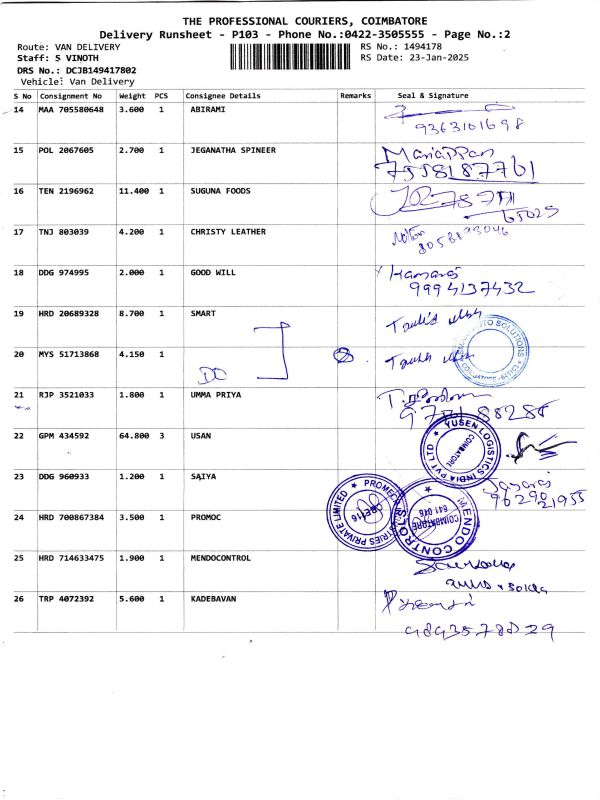 THE PROFESSIONAL COURIERS, COIMBATORE
Delivery Runsheet - P103 - Phone No.:0422-3505555 - Page No.:2
Route: VAN DELIVERY RS No.: 1494178
Staff: S VINOTH RS Date: 23-Jan-2025
DRS No.: DCJB149417802
Vehicle: Van Delivery
S No Consignment No Weight PCS Consignee Details Remarks Seal & Signature
14 MAA 705580648 3.600 1 ABIRAMI
9363101698
15 POL 2067605 2.700 1 JEGANATHA SPINEER Mariappan
7558187761
16 TEN 2196962 11.400 1 SUGUNA FOODS
65025
17 TNJ 803039 4.200 1 CHRISTY LEATHER
8058893046
18 DDG 974995 2.000 1 GOOD WILL
9994137432
19 HRD 20689328 8.700 1 SMART
20 MYS 51713868 4.150 1
DO
21 RJP 3521033 1.800 1 UMMA PRIYA
22 GPM 434592 64.800 3 USAN
YUSEN LOGISTICS INDIA PVT LTD
COIMBATORE
23 DDG 960933 1.200 1 SAIYA
9629021955
24 HRD 700867384 3.500 1 PROMOC
PRIVATE LIMITED
MENDO CONTROLS
COIMBATORE
641 016
25 HRD 714633475 1.900 1 MENDOCONTROL
26 TRP 4072392 5.600 1 KADEBAVAN